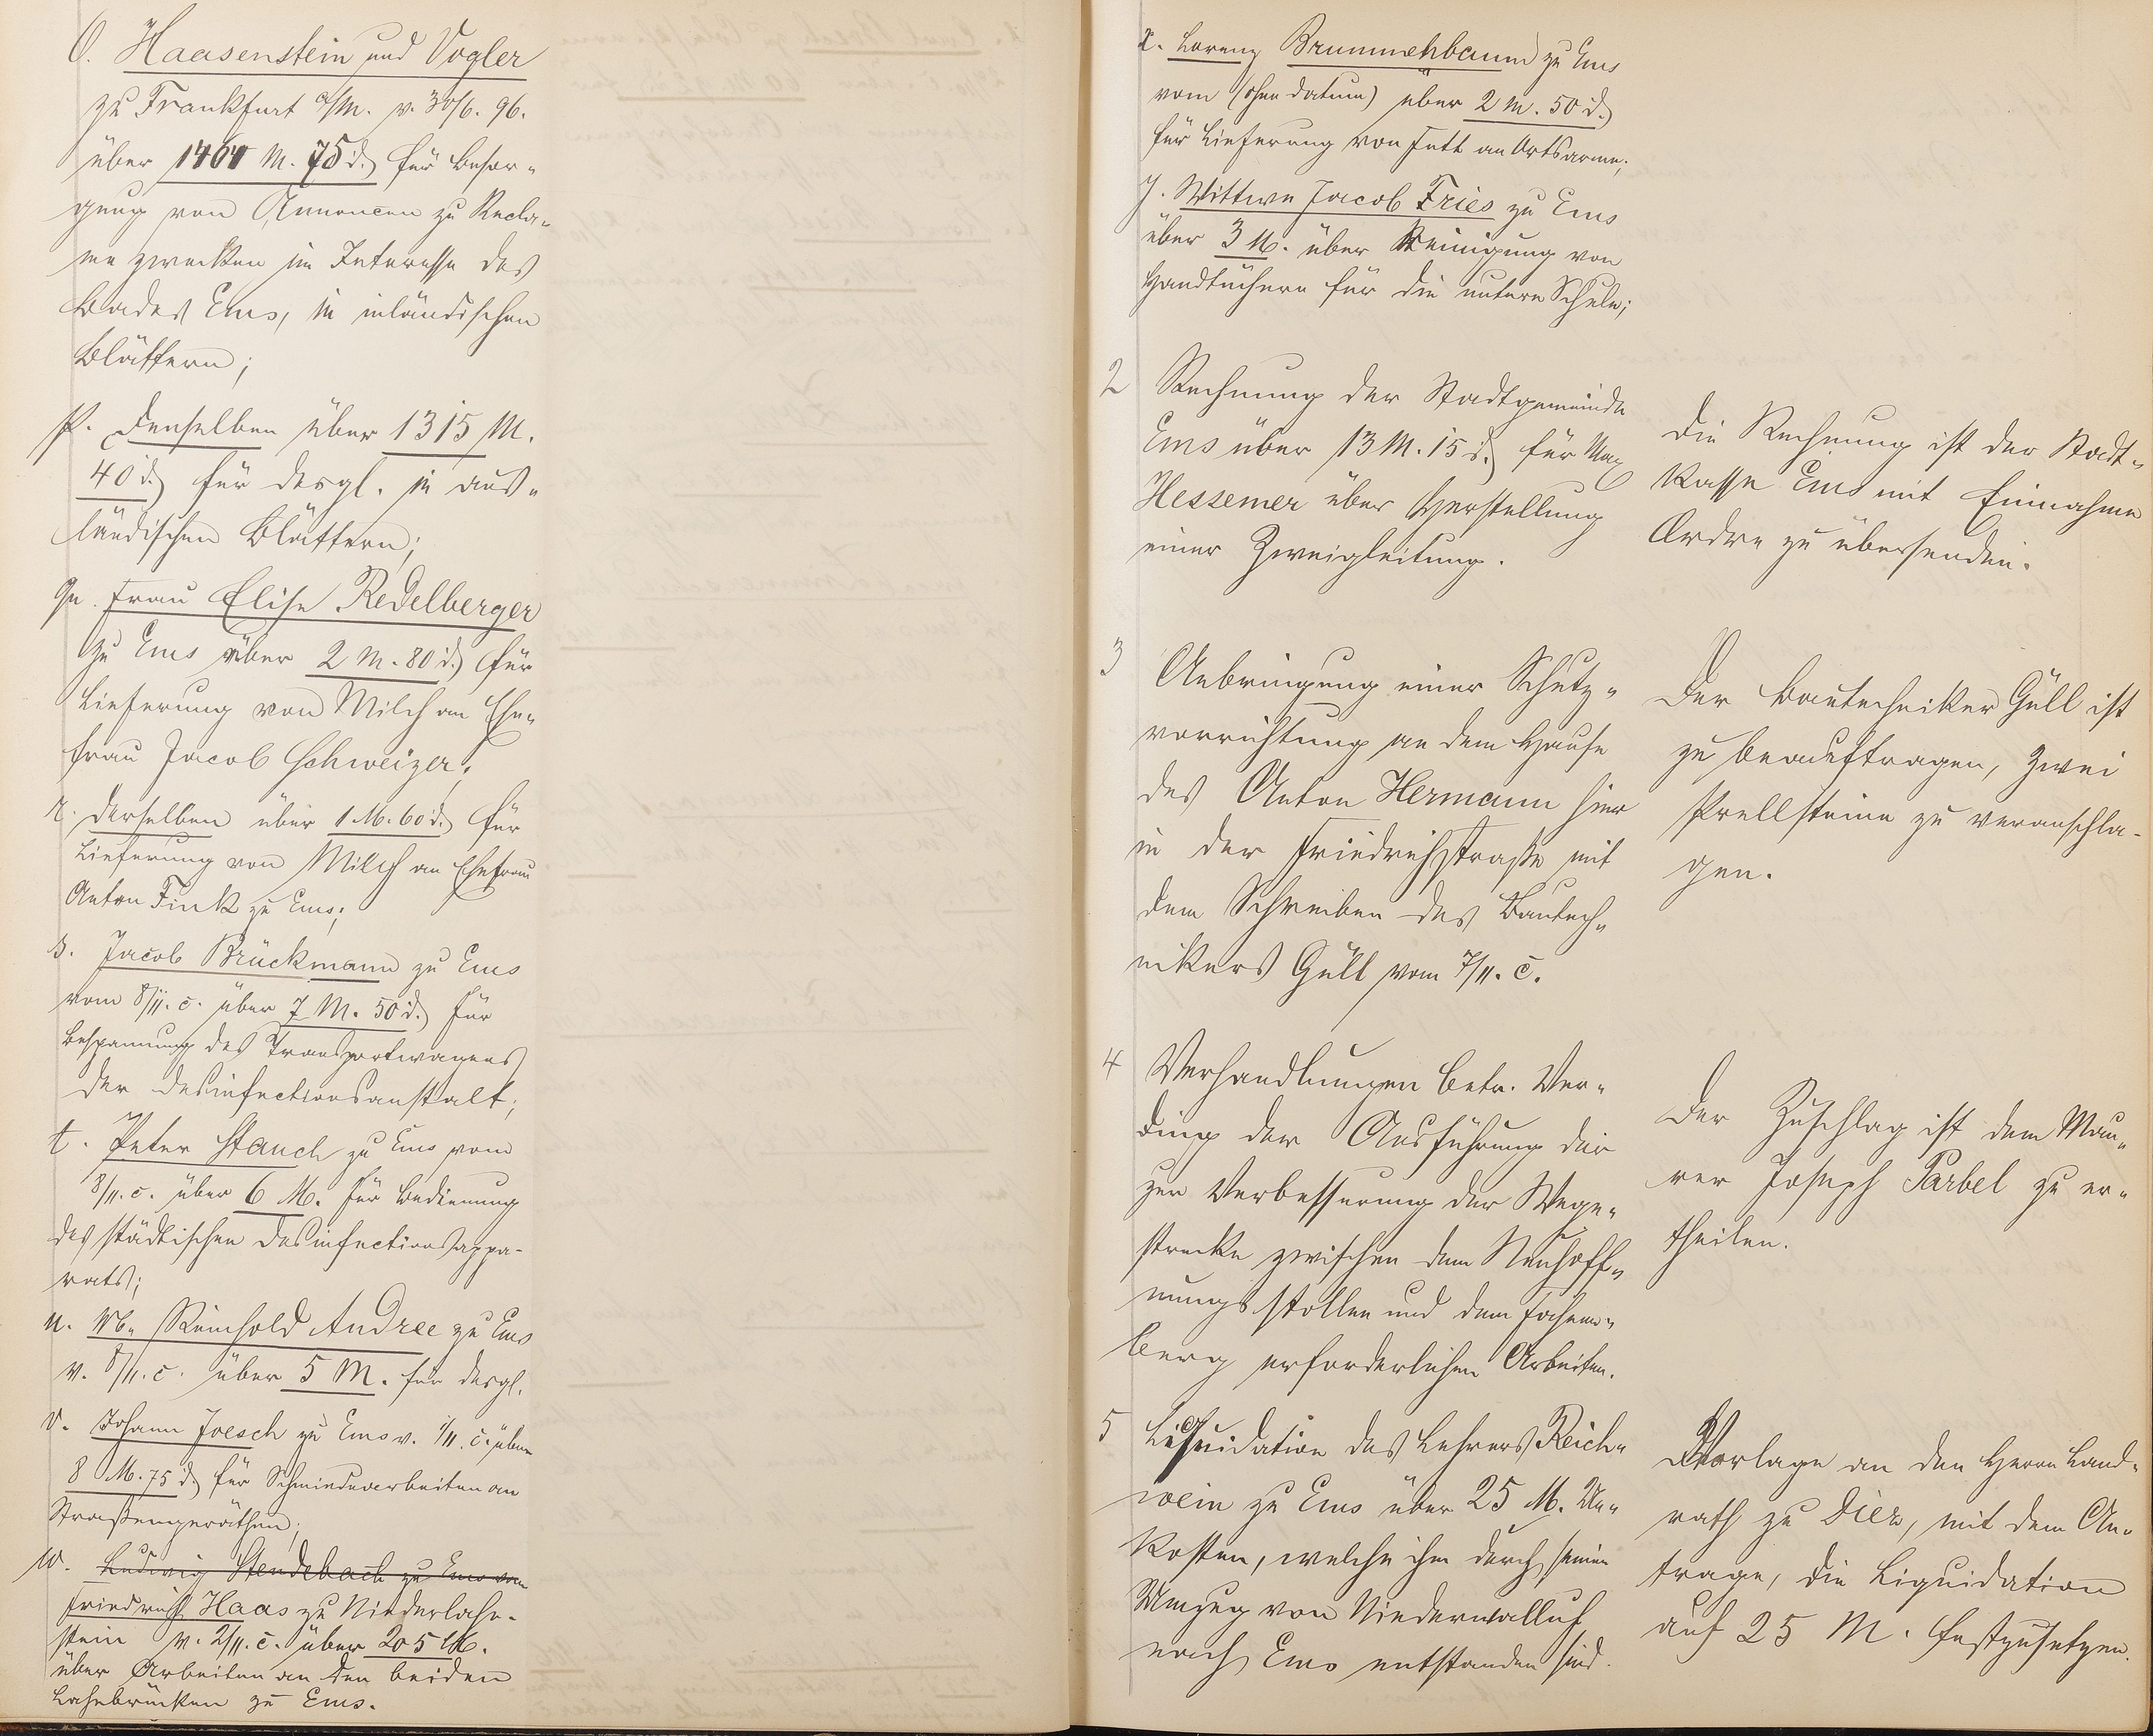 O. Haasenstein und Vogler
zu Frankfurt a/M. v. 30/6. 96.
über 1464 M. 75 d. für Besor-
gung von Annoncen zu Recla-
me zwecken im Interesse des
Bades Ems, in inländischen
Blättern;
p. Denselben über 1315 M.
40 d. für desgl. in aus-
ländischen Blättern;
q. Frau Elise Redelberger
zu Ems über 2 M. 80 d. für
Lieferung von Milch an Ehe-
frau Jacob Schweizer;
r. Derselben über 1 M. 60 d. für
Lieferung von Milch an Ehefrau
Anton Fink zu Ems;
s. Jacob Brückmann zu Ems
vom 8/11. c. über 7 M. 50 d. für
Bespannung des Transportwagens
der Desinfectionsanstalt;
t. Peter Stauch zu Ems vom
8/11. c. über 6 M. für Bedienung
des städtischen Desinfectionsappa-
rats;
u. Reinhold Andree zu Ems
v. 8/11. c. über 5 M. für desgl.
v. Johann Joesch zu Ems v. 1/11. c. über
8 M. 75 d. für Schmiedearbeiten an
Straßengeräthen;
w. Ludwig Stendebach zu Ems vom
Friedrich Haas zu Niederlahn-
stein v. 2/11. c. über 205 M.
über Arbeiten an den beiden
Lahnbrücken zu Ems.
x. Lorenz Brummehbaum zu Ems
vom (ohne Datum) über 2 M. 50 d.
für Lieferung von Fett an Ortsarme;
y. Wittwe Jacob Fries zu Ems
über 3 M. über Reinigung von
Handtüchern für die untere Schule;
2 Rechnung der Stadtgemeinde
Ems über 13 M. 15 d. für Max
Hessemer über Herstellung
einer Zweigleitung.
Die Rechnung ist der Stadt-
kasse Ems mit Einnahme
Ordre zu übersenden.
3 Anbringung einer Schutz-
vorrichtung an dem Hause
des Anton Hermann hier
in der Friedrichstraße mit
dem Schreiben des Bautech-
nikers Güll vom 7/11. c.
Der Bautechniker Güll ist
zu beauftragen, zwei
Prellsteine zu veranschla-
gen.
4 Verhandlungen betr. Ver-
ding der Ausführung der
zur Verbesserung der Wege-
strecke zwischen dem Neuhoff-
nungsstollen und dem
berg erforderlichen Arbeiten.
Der Zuschlag ist dem Mau-
rer Joseph Parbel zu er-
theilen.
5 Liquidation des Lehrers Reich-
wein zu Ems über 25 M. Un-
kosten, welche ihm durch seinen
Umzug von Niederwalluf
nach Ems entstanden sind.
Vorlage an den Herrn Land-
rath zu Diez, mit dem An-
trage, die Liquidation
auf 25 M. festzusetzen.